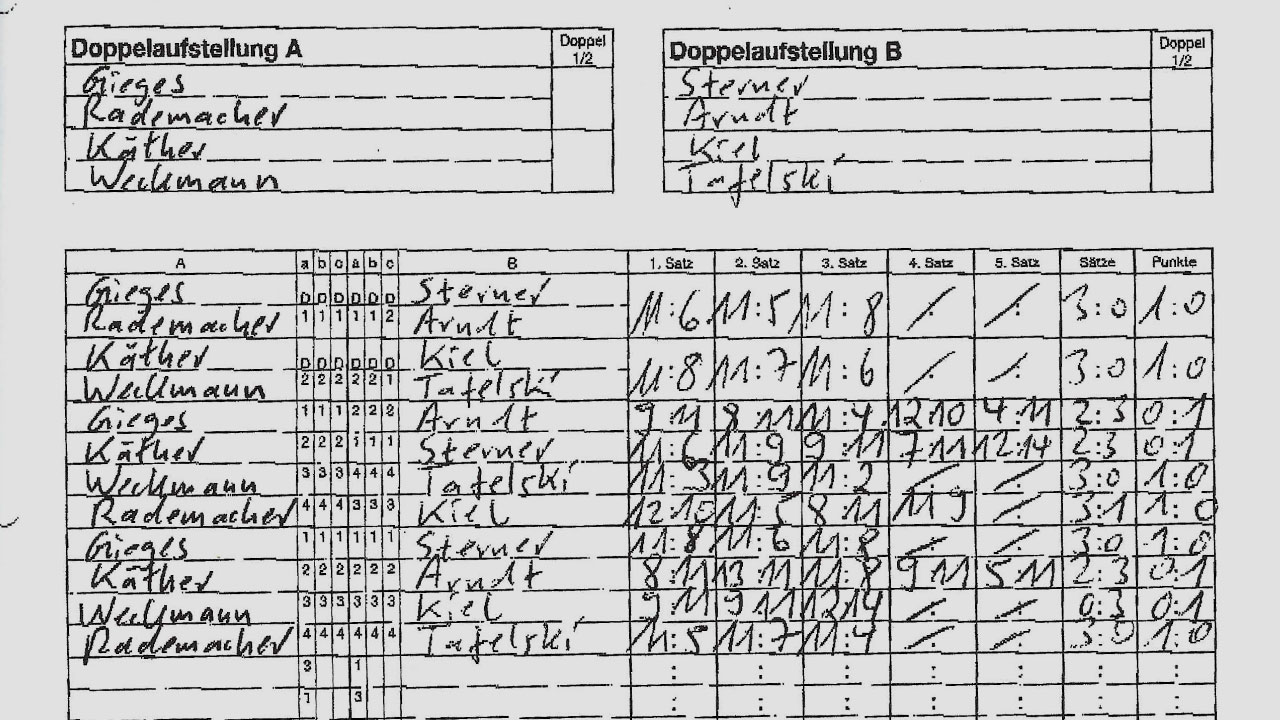 Doppelaufstellung A Doppel 1/2
Gieges
Rademacher
Käther
Weckmann
Doppelaufstellung B Doppel 1/2
Sterner
Arndt
Kiel
Tafelski
A a b c a b c B 1. Satz 2. Satz 3. Satz 4. Satz 5. Satz Sätze Punkte
Gieges D D D D D D Sterner
Rademacher 1 1 1 1 1 2 Arndt 11:6 11:5 11:8 ⁄. ⁄. 3:0 1:0
Käther D D D D D D Kiel
Weckmann 2 2 2 2 2 1 Tafelski 11:8 11:7 11:6 ⁄. ⁄. 3:0 1:0
Gieges 1 1 1 2 2 2 Arndt 9:11 8:11 11:4 12:10 4:11 2:3 0:1
Käther 2 2 2 1 1 1 Sterner 11:6 11:9 9:11 7:11 12:14 2:3 0:1
Weckmann 3 3 3 4 4 4 Tafelski 11:3 11:9 11:2 ⁄. ⁄. 3:0 1:0
Rademacher 4 4 4 3 3 3 Kiel 12:10 11:5 8:11 11:9 ⁄. 3:1 1:0
Gieges 1 1 1 1 1 1 Sterner 11:8 11:6 11:8 ⁄. ⁄. 3:0 1:0
Käther 2 2 2 2 2 2 Arndt 8:11 13:11 11:8 9:11 5:11 2:3 0:1
Weckmann 3 3 3 3 3 3 Kiel 9:11 9:11 12:14 ⁄. ⁄. 0:3 0:1
Rademacher 4 4 4 4 4 4 Tafelski 11:5 11:7 11:4 ⁄. ⁄. 3:0 1:0
3 1 : : : : : : :
1 3 : : : : : : :